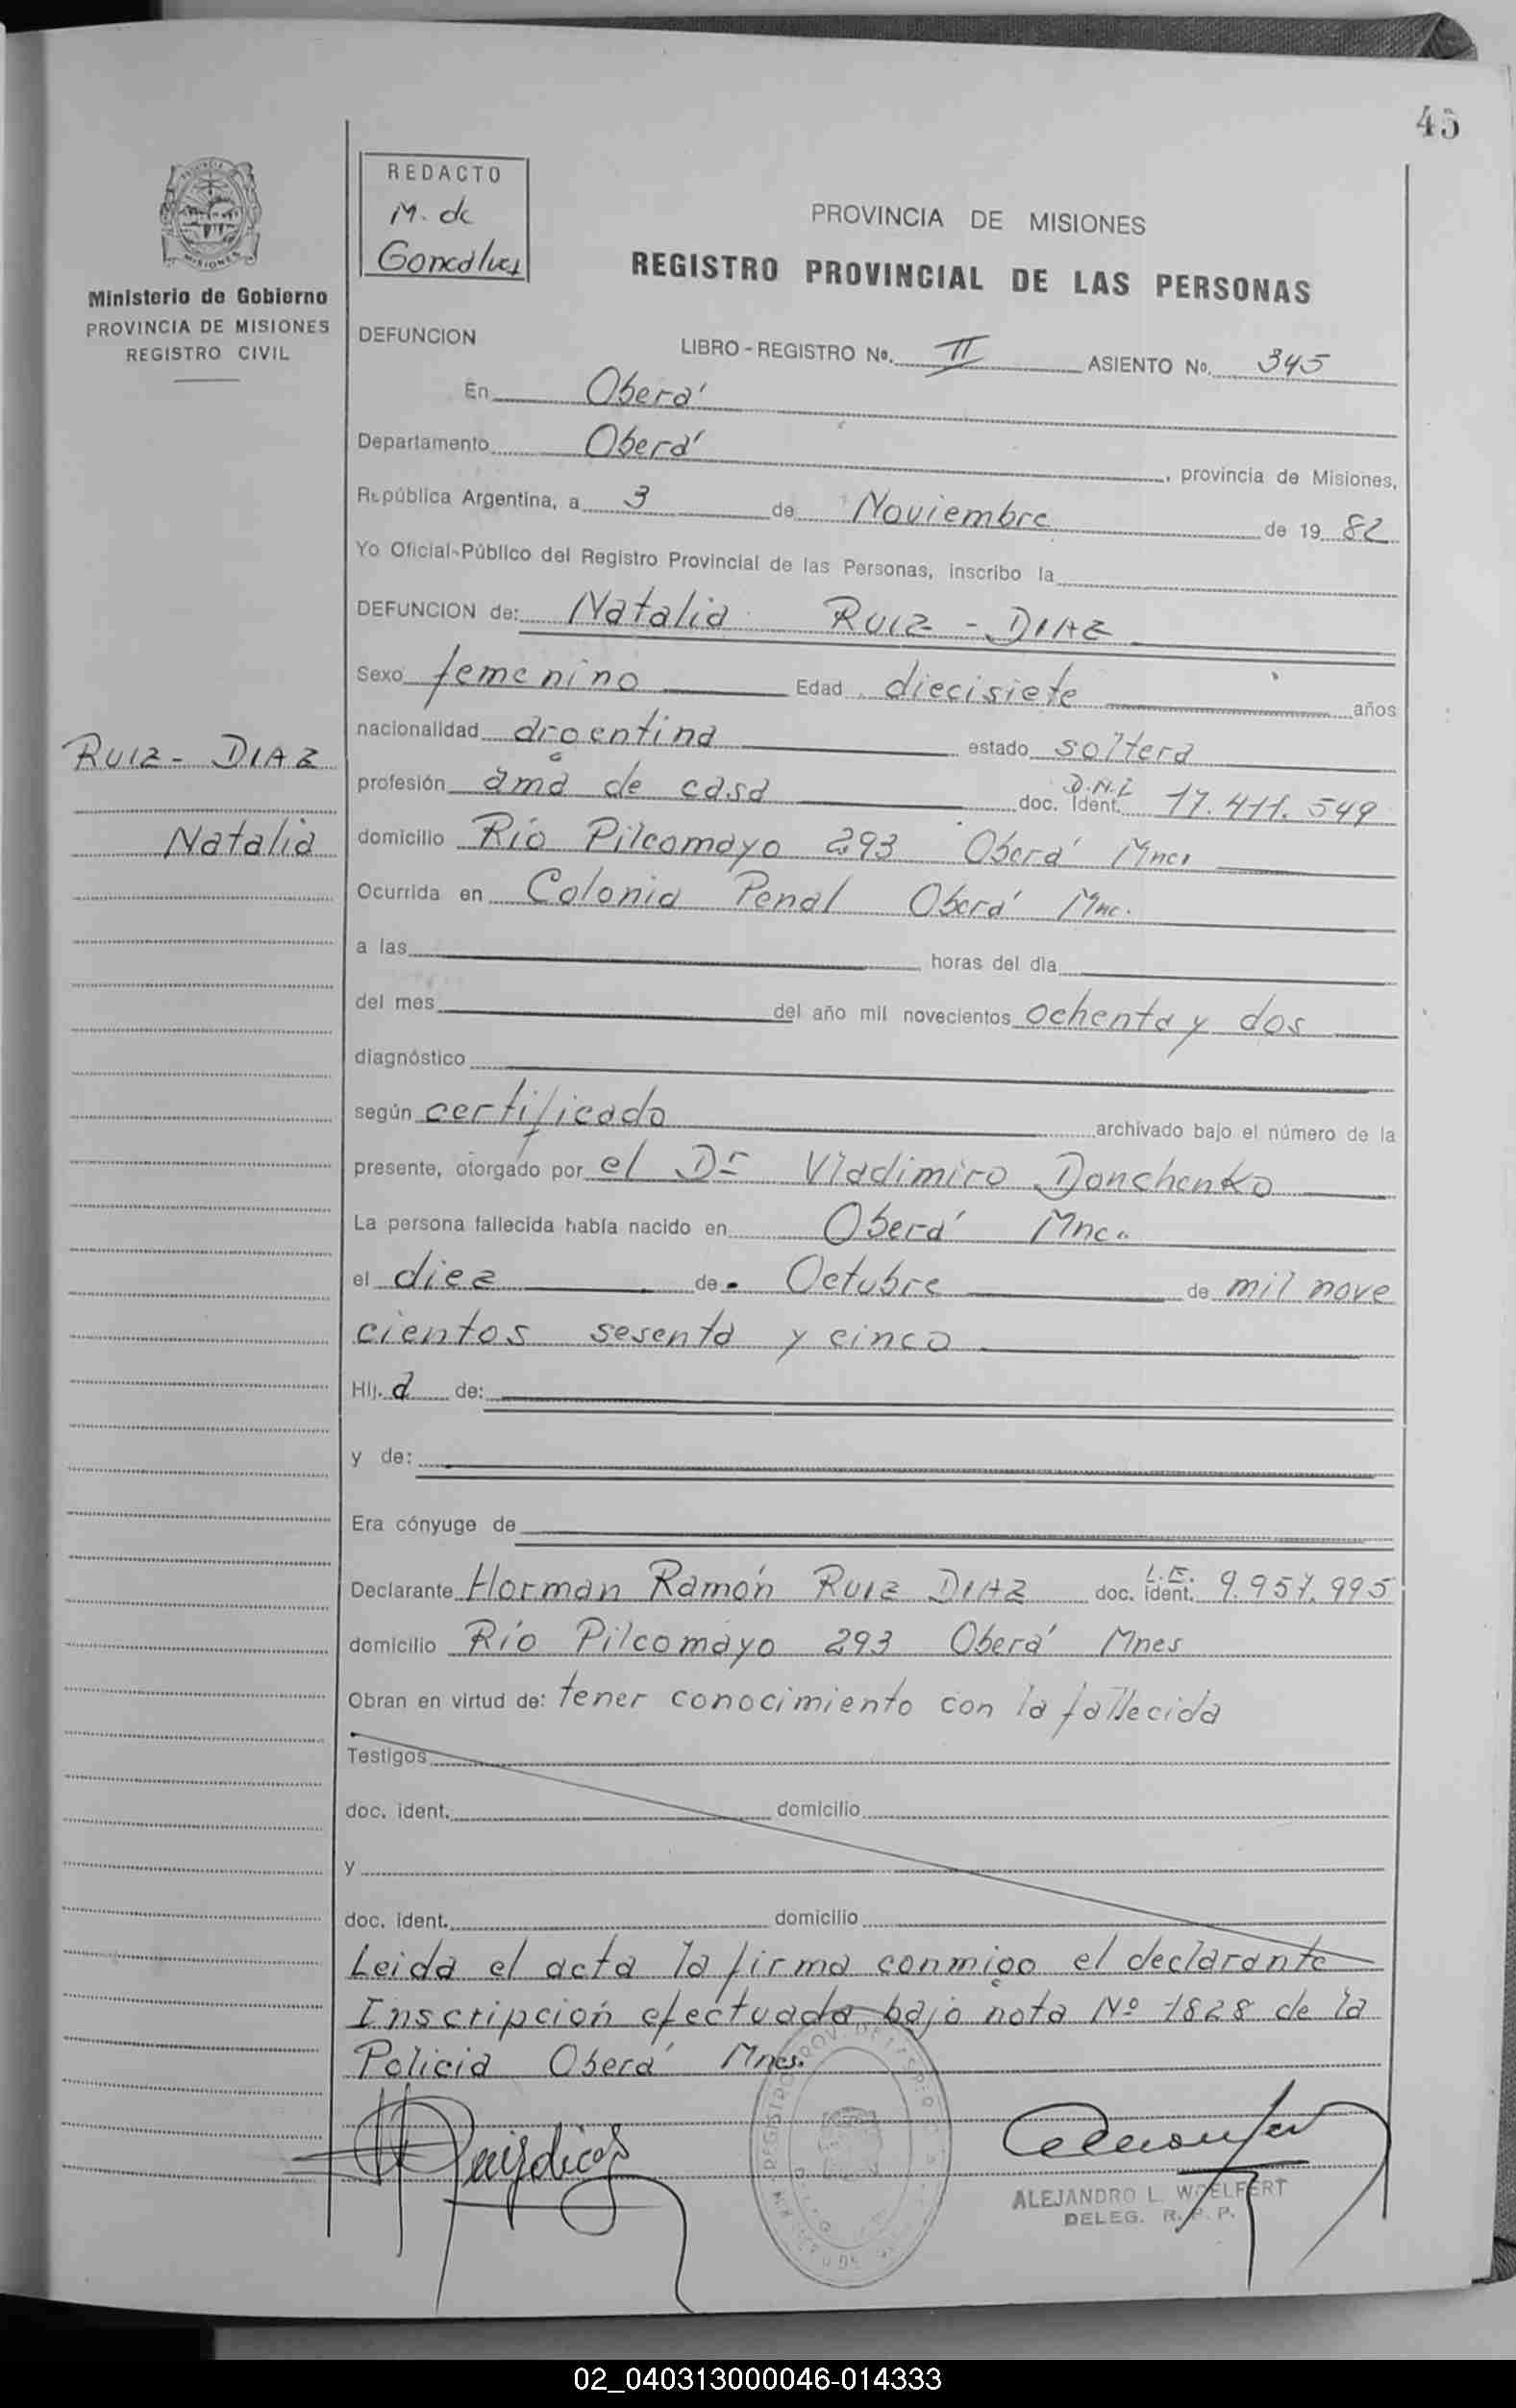 45
REDACTO
M. de
Goncalves
PROVINCIA DE MISIONES
REGISTRO PROVINCIAL DE LAS PERSONAS
MISIONES
Ministerio de Gobierno
PROVINCIA DE MISIONES
REGISTRO CIVIL
DEFUNCION
LIBRO-REGISTRO Nº. II ASIENTO Nº. 345
En Oberá
Departamento Oberá, provincia de Misiones,
República Argentina, a 3 de Noviembre de 1982
Yo Oficial-Público del Registro Provincial de las Personas, inscribo la
DEFUNCION de: Natalia RUIZ - DIAZ
Sexo femenino Edad diecisiete años
nacionalidad argentina estado soltera
RUIZ - DIAZ
profesión ama de casa doc. ident. D.N.I. 17.411.549
Natalia
domicilio Río Pilcomayo 293 Oberá Mnes
Ocurrida en Colonia Penal Oberá Mnc.
a las horas del día
del mes del año mil novecientos ochenta y dos
diagnóstico
según certificado archivado bajo el número de la
presente, otorgado por el Dr Vladimiro Donchenko
La persona fallecida había nacido en Oberá Mnc.
el diez de Octubre de mil nove
cientos sesenta y cinco
Hij. a de:
y de:
Era cónyuge de
Declarante Horman Ramón RUIZ DIAZ doc. ident. L.E. 9.957.995
domicilio Río Pilcomayo 293 Oberá Mnes
Obran en virtud de: tener conocimiento con la fallecida
Testigos
doc. ident. domicilio
y
doc. ident. domicilio
Leida el acta la firma conmigo el declarante
Inscripción efectuada bajo nota Nº 1828 de la
Policia Oberá Mnes.
ALEJANDRO L. WOELFERT
DELEG. R. P. P.
02_040313000046-014333